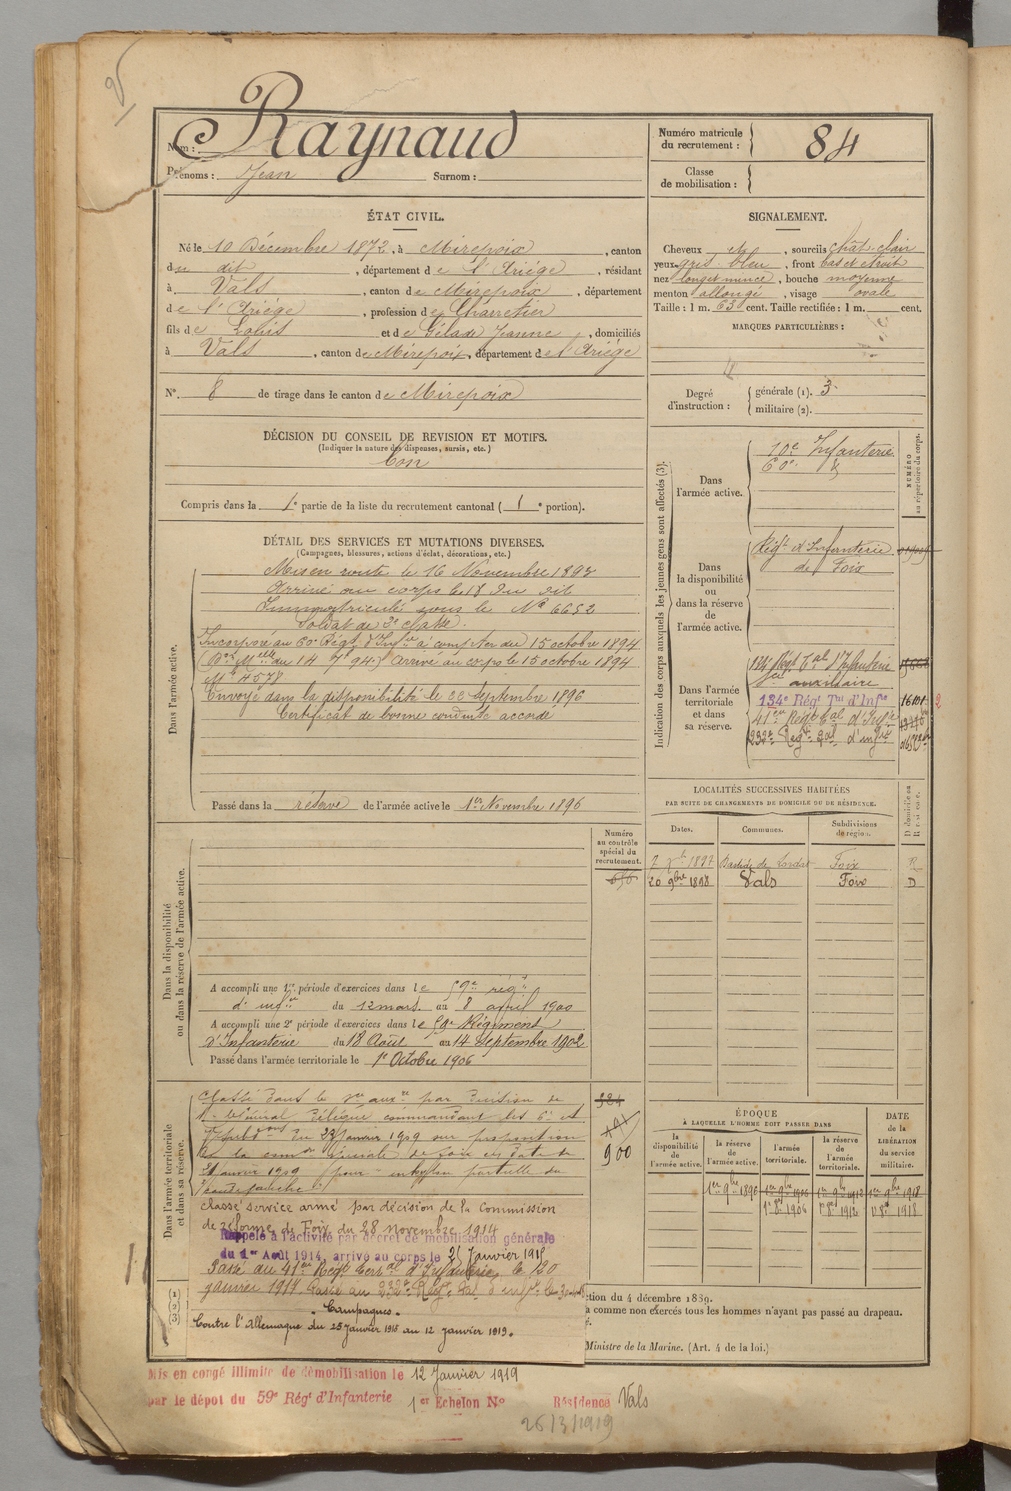 Nom : Raynaud
Prénoms : Jean Surnom :
Numéro matricule du recrutement : 84
Classe de mobilisation :
ÉTAT CIVIL.
Né le 10 Décembre 1872, à Mirepoix, canton
du dit, département de l'Ariége, résidant
à Vals, canton de Mirepoix, département
de l'Ariége, profession de Charretier
fils de Louis et de Gélade Jeanne, domiciliés
à Vals, canton de Mirepoix, département de l'Ariége
N° 8 de tirage dans le canton de Mirepoix
SIGNALEMENT.
Cheveux et, sourcils chât. clair
yeux gris bleu, front bas et étroit
nez long et mince, bouche moyenne
menton allongé, visage ovale
Taille : 1 m. 63 cent. Taille rectifiée : 1 m. cent.
MARQUES PARTICULIÈRES :
Degré d'instruction : générale (1). 3
militaire (2).
DÉCISION DU CONSEIL DE REVISION ET MOTIFS.
(Indiquer la nature des dispenses, sursis, etc.)
bon
Compris dans la 1e partie de la liste du recrutement cantonal ( 1 e portion).
DÉTAIL DES SERVICES ET MUTATIONS DIVERSES.
(Campagnes, blessures, actions d'éclat, décorations, etc.)
Dans l'armée active.
Mis en route le 16 Novembre 1893
Arrivé au corps le 18 du dit
Immatriculé sous le N° 6652
Soldat de 2e classe.
Incorporé au 60e Régt d'Infie à compter du 15 octobre 1894
Arrivé au corps le 15 octobre 1894
N° 4578
Envoyé dans la disponibilité le 22 Septembre 1896
Certificat de bonne conduite accordé
Passé dans la réserve de l'armée active le 1er Novembre 1896
Indication des corps auxquels les jeunes gens sont affectés (3).
NUMÉRO au répertoire du corps.
Dans l'armée active.
10e Infanterie
60e d
Dans la disponibilité ou dans la réserve de l'armée active.
Régt d'Infanterie
de Foix
Dans l'armée territoriale et dans sa réserve.
134 Régt Tal d'Infanterie
Sce auxiliaire
134e Régt Tal d'Infie
41em Régt Tal d'Infie
232e Régt Tal d'infie
LOCALITÉS SUCCESSIVES HABITÉES
PAR SUITE DE CHANGEMENTS DE DOMICILE OU DE RÉSIDENCE.
Dates. Communes. Subdivisions de région. D domicile ou R résidence.
7 Xbre 1897 Bastide de Lordat Foix R
20 9bre 1898 Vals Foix D
Dans la disponibilité ou dans la réserve de l'armée active.
Numéro au contrôle spécial du recrutement.
A accompli une 1re période d'exercices dans le 59e régt
d'infie du 12 mars au 8 avril 1900
A accompli une 2e période d'exercices dans le 59e Régiment
d'Infanterie du 18 Août au 14 Septembre 1902
Passé dans l'armée territoriale le 1er Octobre 1906
Dans l'armée territoriale et dans sa réserve.
Classé dans le sce auxre par décision de
Mr le Général Délégué commandant les 6e et
du 23 Janvier 1909 sur proposition
de la comon spéciale de Foix en date du
Janvier 1909 pour
900
classé service armé par décision de la Commission
de réforme de Foix du 28 novembre 1914
Rappelé à l'activité par décret de mobilisation générale
du 1er Août 1914, arrivé au corps le 25 Janvier 1915
Passé au 41em Régt Terral d'Infanterie le 20
janvier 1917. Passé au 232e Régt Tal d'infie le
Campagnes.
Contre l'Allemagne du 25 Janvier 1915 au 12 janvier 1919.
ÉPOQUE
À LAQUELLE L'HOMME DOIT PASSER DANS
la disponibilité de l'armée active. la réserve de l'armée active. l'armée territoriale. la réserve de l'armée territoriale. DATE de la LIBÉRATION du service militaire.
1er 9bre 1896 1er 9bre 1906 1er 9bre 1912 1er 9bre 1918
1er 8bre 1906 1er 8bre 1912 1er 8bre 1918
(1)
(2)
(3)
tion du 4 décembre 1889.
à comme non exercés tous les hommes n'ayant pas passé au drapeau.
Ministre de la Marine. (Art. 4 de la loi.)
Mis en congé illimité de démobilisation le 12 Janvier 1919
par le dépôt du 59e Régt d'Infanterie 1er Echelon N° Résidence Vals
26/3/1919